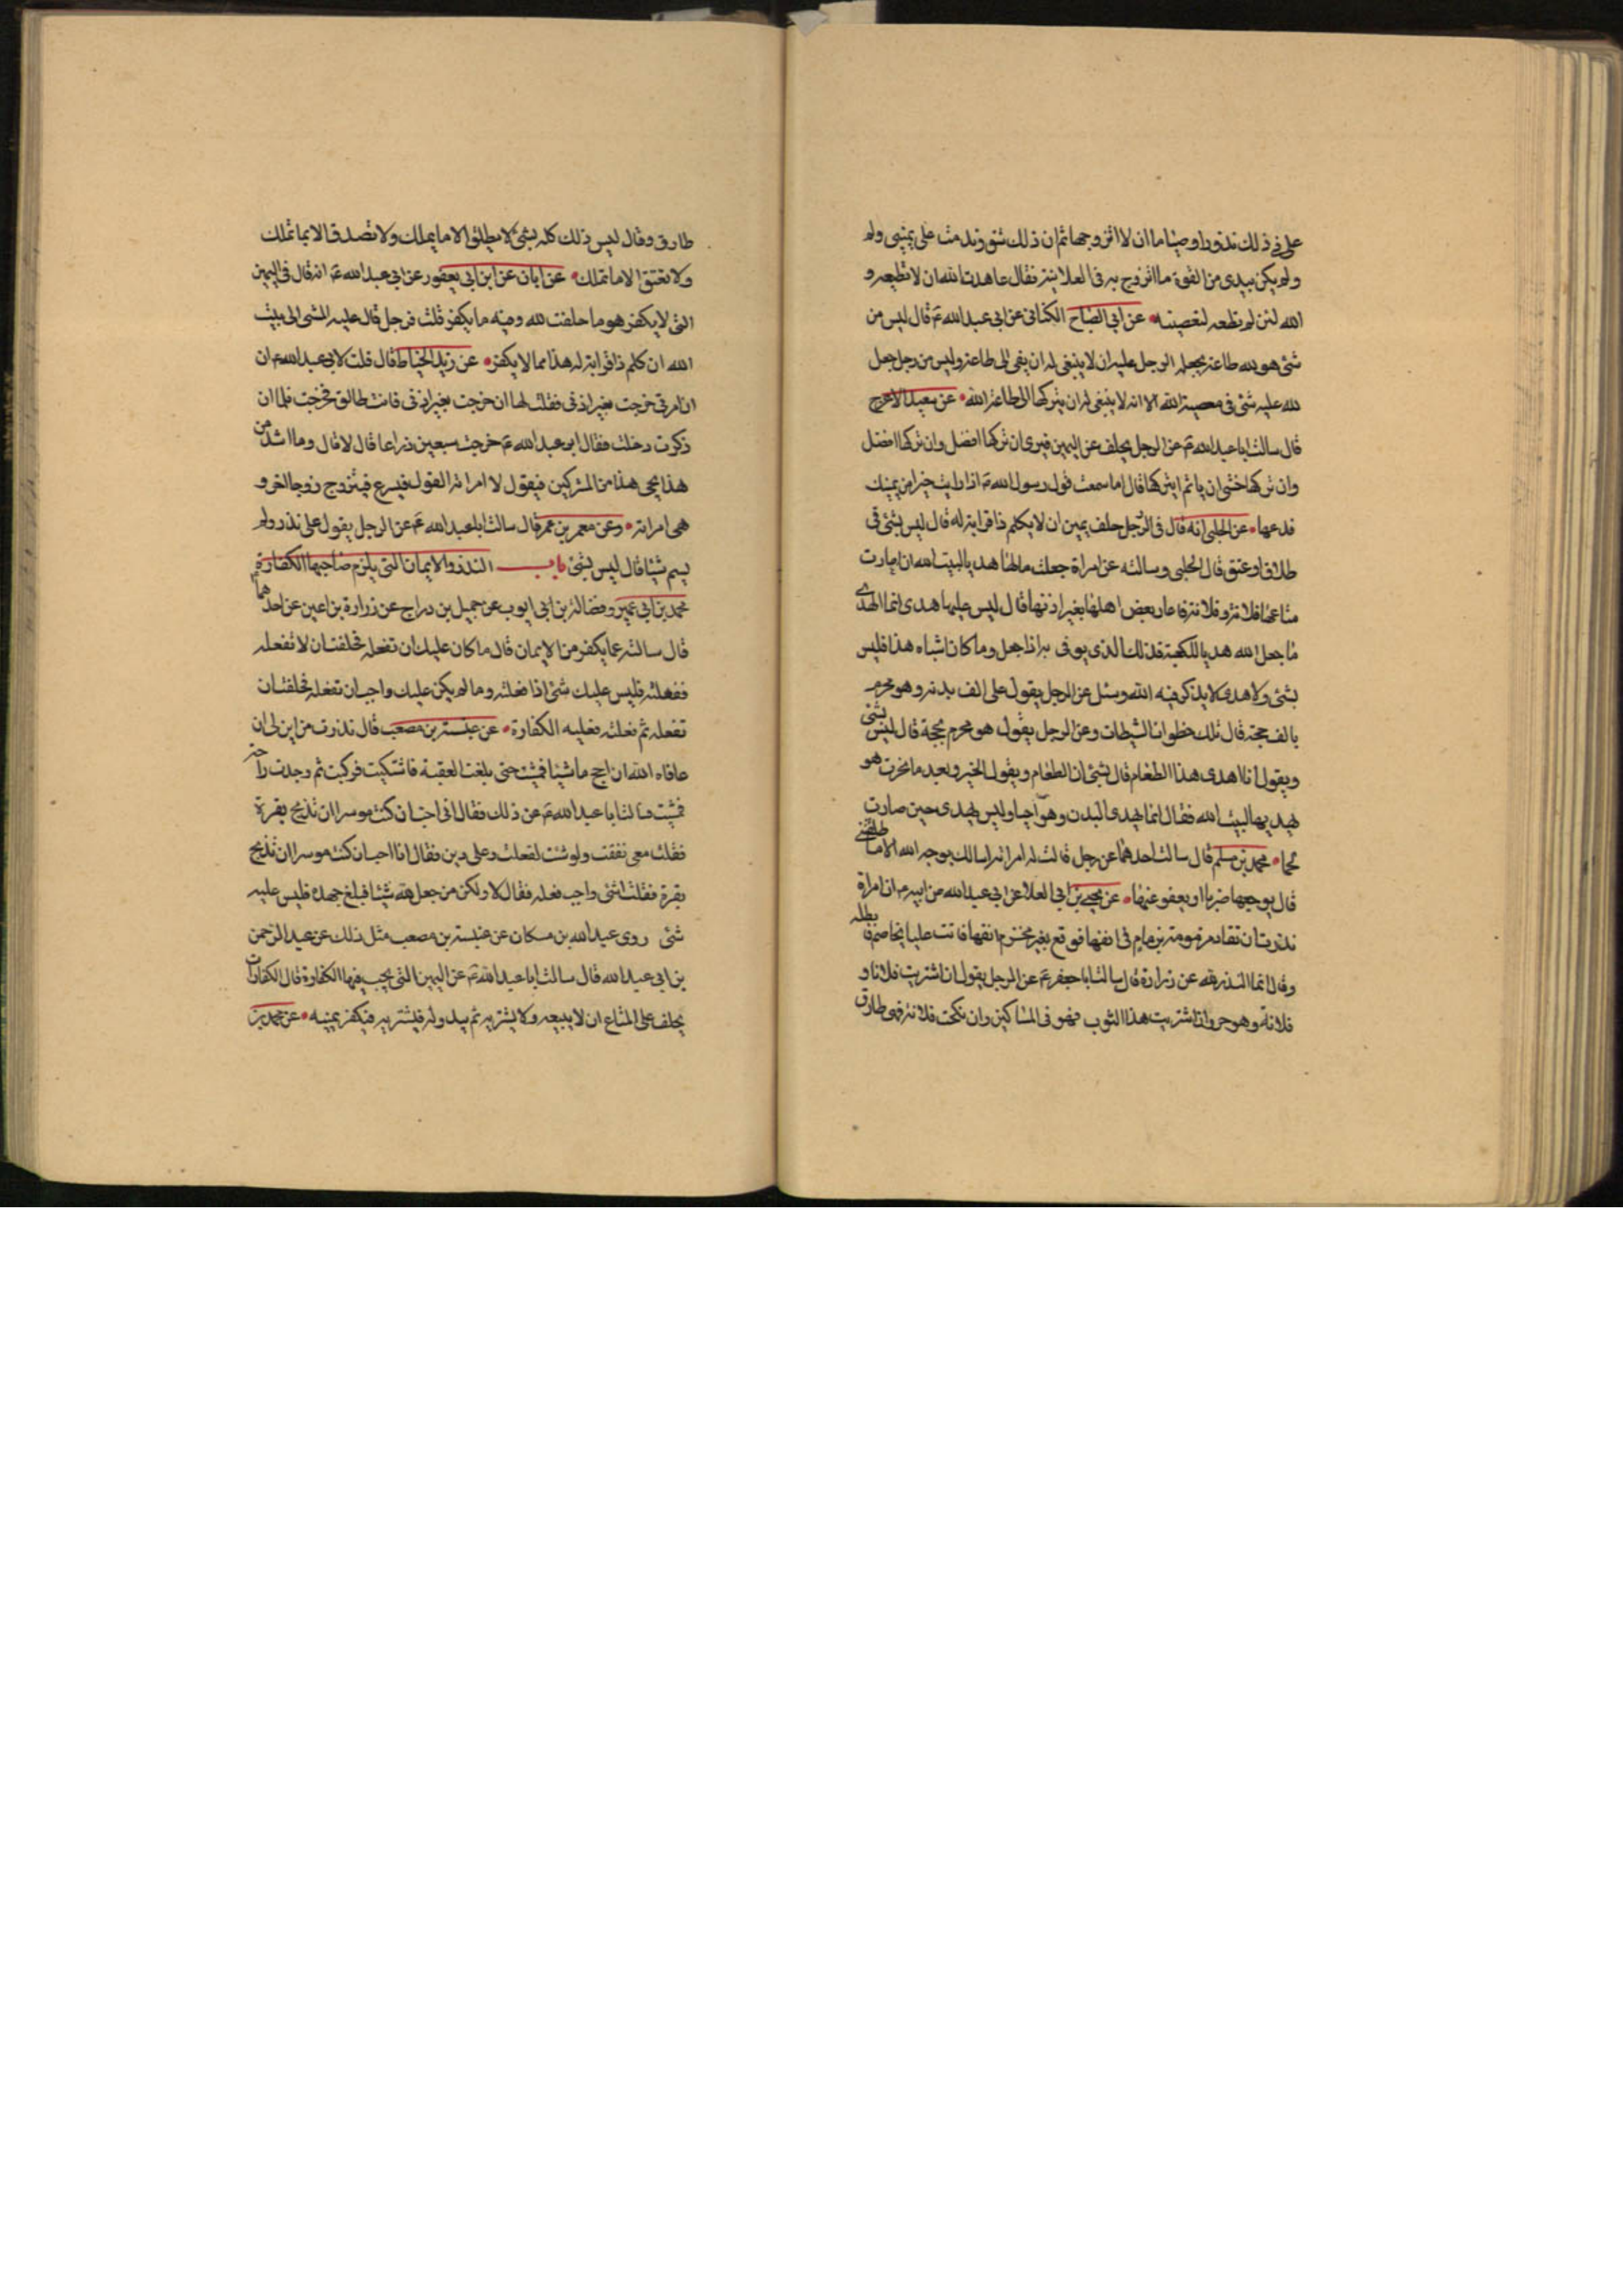 على في ذلك نذورا وصياما ان لا اتزوجها ثم ان ذلك شق وندمت على يميني ولم
ولم يكن بيدي من القوة ما اتزوج به في العلانية فقال عاهدت الله ان لا تطيعه و
الله لئن لم تطعه لتعصينه عن ابي الصباح الكناني عن ابي عبد الله ع قال ليس من
شئ هو لله طاعة يجعله الرجل عليه ان لا ينبغي له ان يفي الى طاعة وليس من رجل جعل
لله عليه شئ في معصية الله الا انه لا ينبغي له ان يتركها الى طاعة الله عن سعيد الاعرج
قال سالت ابا عبد الله ع عن الرجل يحلف عن اليمين فيرى ان تركها افضل وان تركها افضل
وان تركها خشى ان ياثم ايتركها قال اما سمعت قول رسول الله ص اذا رايت خيرا من يمينك
فدعها عن الحلبي انه قال في الرجل حلف بيمين ان لا يكلم ذا قرابة له قال ليس بشئ في
طلاق او عتق قال الحلبي وسالته عن امراة جعلت مالها هديا لبيت الله ان اعارت
متاعها فلانة وفلانة فاعار بعض اهلها بغير اذنها قال ليس عليها هدى انما الهدى
ما جعل الله هديا للكعبة فذلك الذي يوفى به اذا جعل وما كان اشباه هذا فليس
بشئ ولا هدى لا يذكر فيه الله وسئل عن الرجل يقول على الف بدنة وهو محرم
بالف حجة قال تلك خطوات الشيطان وعن الرجل يقول هو محرم بحجة قال ليس بشئ
ويقول انا اهدى هذا الطعام قال ليس بشئ ان الطعام ويقول الخبر وبعد ما نحرت هو
يهديها لبيت الله فقال انما يهدى البدن وهو احيا وليس يهدى حين صارت
لحما محمد بن مسلم قال سالت احدهما عن رجل قالت له امراته اسالك بوجه الله الا ما طلقتني
قال يوجعها ضربا او يعفو عنها عن يحيى بن ابي العلا عن ابي عبد الله عن ابيه ع ان امراة
نذرت ان تقاد مزمومة بزمام في انفها فوقع بعير فخرم انفها فاتت عليا تخاصم فابطله
وقال انما النذر لله عن زرارة قال سالت ابا جعفر ع عن الرجل يقول ان اشتريت فلانا و
فلانة وهو حر وان اشتريت هذا الثوب فهو في المساكين وان نكحت فلانة فهي طارق
طارق وقال ليس ذلك كله بشئ لا يطلق الا ما يملك ولا تصدق الا بما تملك
ولا تعتق الا ما تملك عن ابان عن ابن ابي يعفور عن ابي عبد الله ع انه قال في اليمين
التي لا يكفر هو ما حلفت لله وفيه ما يكفر قلت فرجل قال عليه المشى الى بيت
الله ان كلم ذا قرابة له هذا مما لا يكفر عن زيد الخياط قال قلت لابي عبد الله ع ان
ان امرتي خرجت بغير اذني فقلت لها ان خرجت بغير اذني فانت طالق فخرجت فلما ان
ذكرت دخلت فقال ابو عبد الله ع خرجت سبعين ذراعا قال لا قال وما اشد من
هذا يجئ هذا من المشركين فيقول لامراته القول فيسرع فيتزوج زوجا اخر و
هي امراته وعن معمر بن عمر قال سالت ابا عبد الله ع عن الرجل يقول على نذر ولم
يسم شيئا قال ليس بشئ باب النذر والايمان التي يلزم صاحبها الكفارة
محمد بن ابي عمير وفضالة بن ابي ايوب عن جميل بن دراج عن زرارة بن اعين عن احدهما
قال سالته عما يكفر من الايمان قال ما كان عليك ان تفعله فحلفت ان لا تفعله
ففعلته فليس عليك شئ اذا فعلته وما لم يكن عليك واجب ان تفعله فحلفت ان
تفعله ثم فعلته فعليه الكفارة عن عنبسة بن مصعب قال نذرت من ابن لى ان
عافاه الله ان احج ماشيا فمشيت حتى بلغت العقبة فاشتكيت فركبت ثم وجدت راحة
فمشيت فسالت ابا عبد الله ع عن ذلك فقال اني احب ان كنت موسرا ان تذبح بقرة
فقلت معي نفقت ولو شئت لفعلت وعلى دين فقال انا احب ان كنت موسرا ان تذبح
بقرة فقلت اشئ واجب فعله فقال لا ولكن من جعل لله شيئا فبلغ جهده فليس عليه
شئ روى عبد الله بن مسكان عن عنبسة بن مصعب مثل ذلك عن عبد الرحمن
بن ابي عبد الله قال سالت ابا عبد الله ع عن اليمين التي يجب فيها الكفارة قال الكفارات
يحلف على المتاع ان لا يبيعه ولا يشتريه ثم يبدو له فيشتريه فيكفر يمينه عن محمد بن